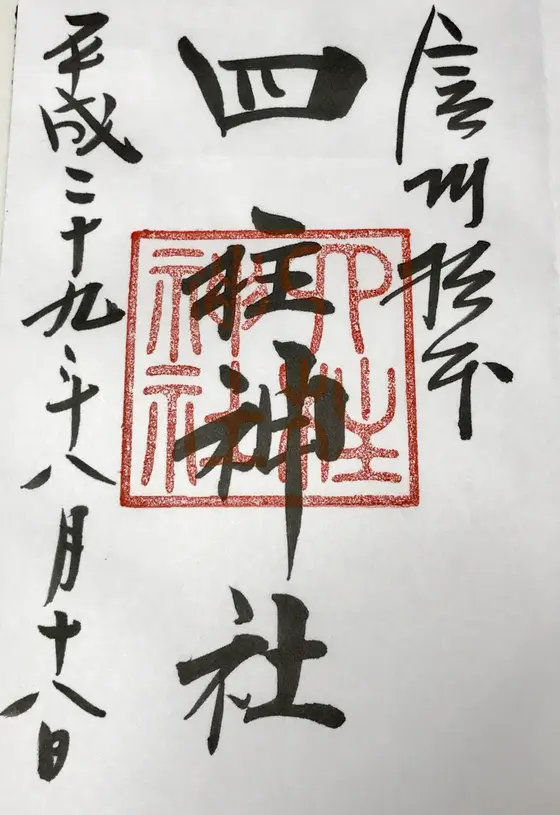 信州松本
四柱神社
平成二十九年八月十八日
四柱
神社